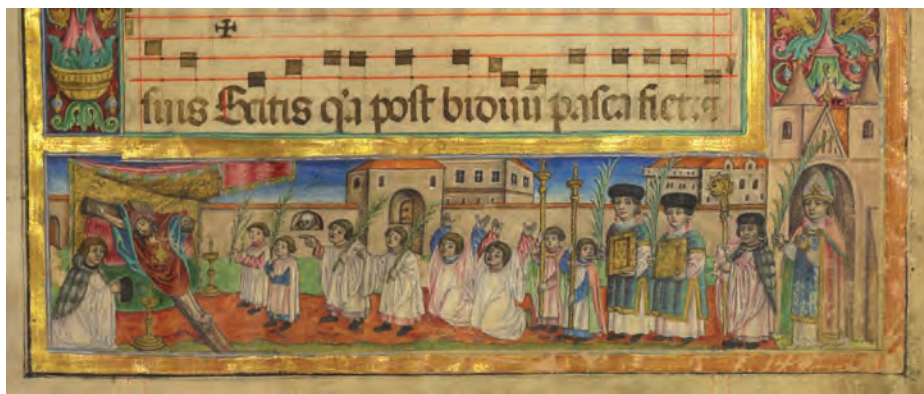 suis Scitis q'a post biduū pasca fiet: ⁊